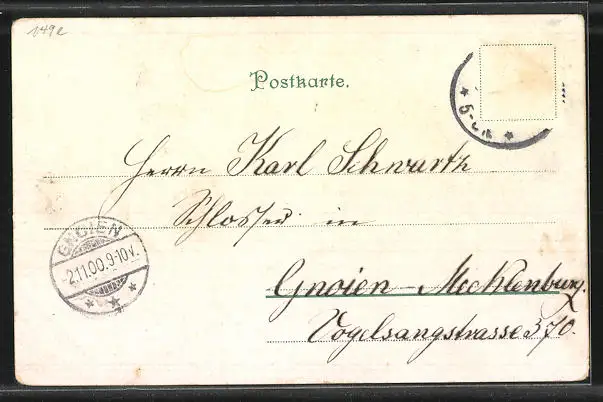 149e
Postkarte.
Herrn Karl Schwartz
Schlosser in
Gnoien-Mecklenburg.
Vogelsangstrasse 370.
GNOIEN
2.11.00.9-10V.